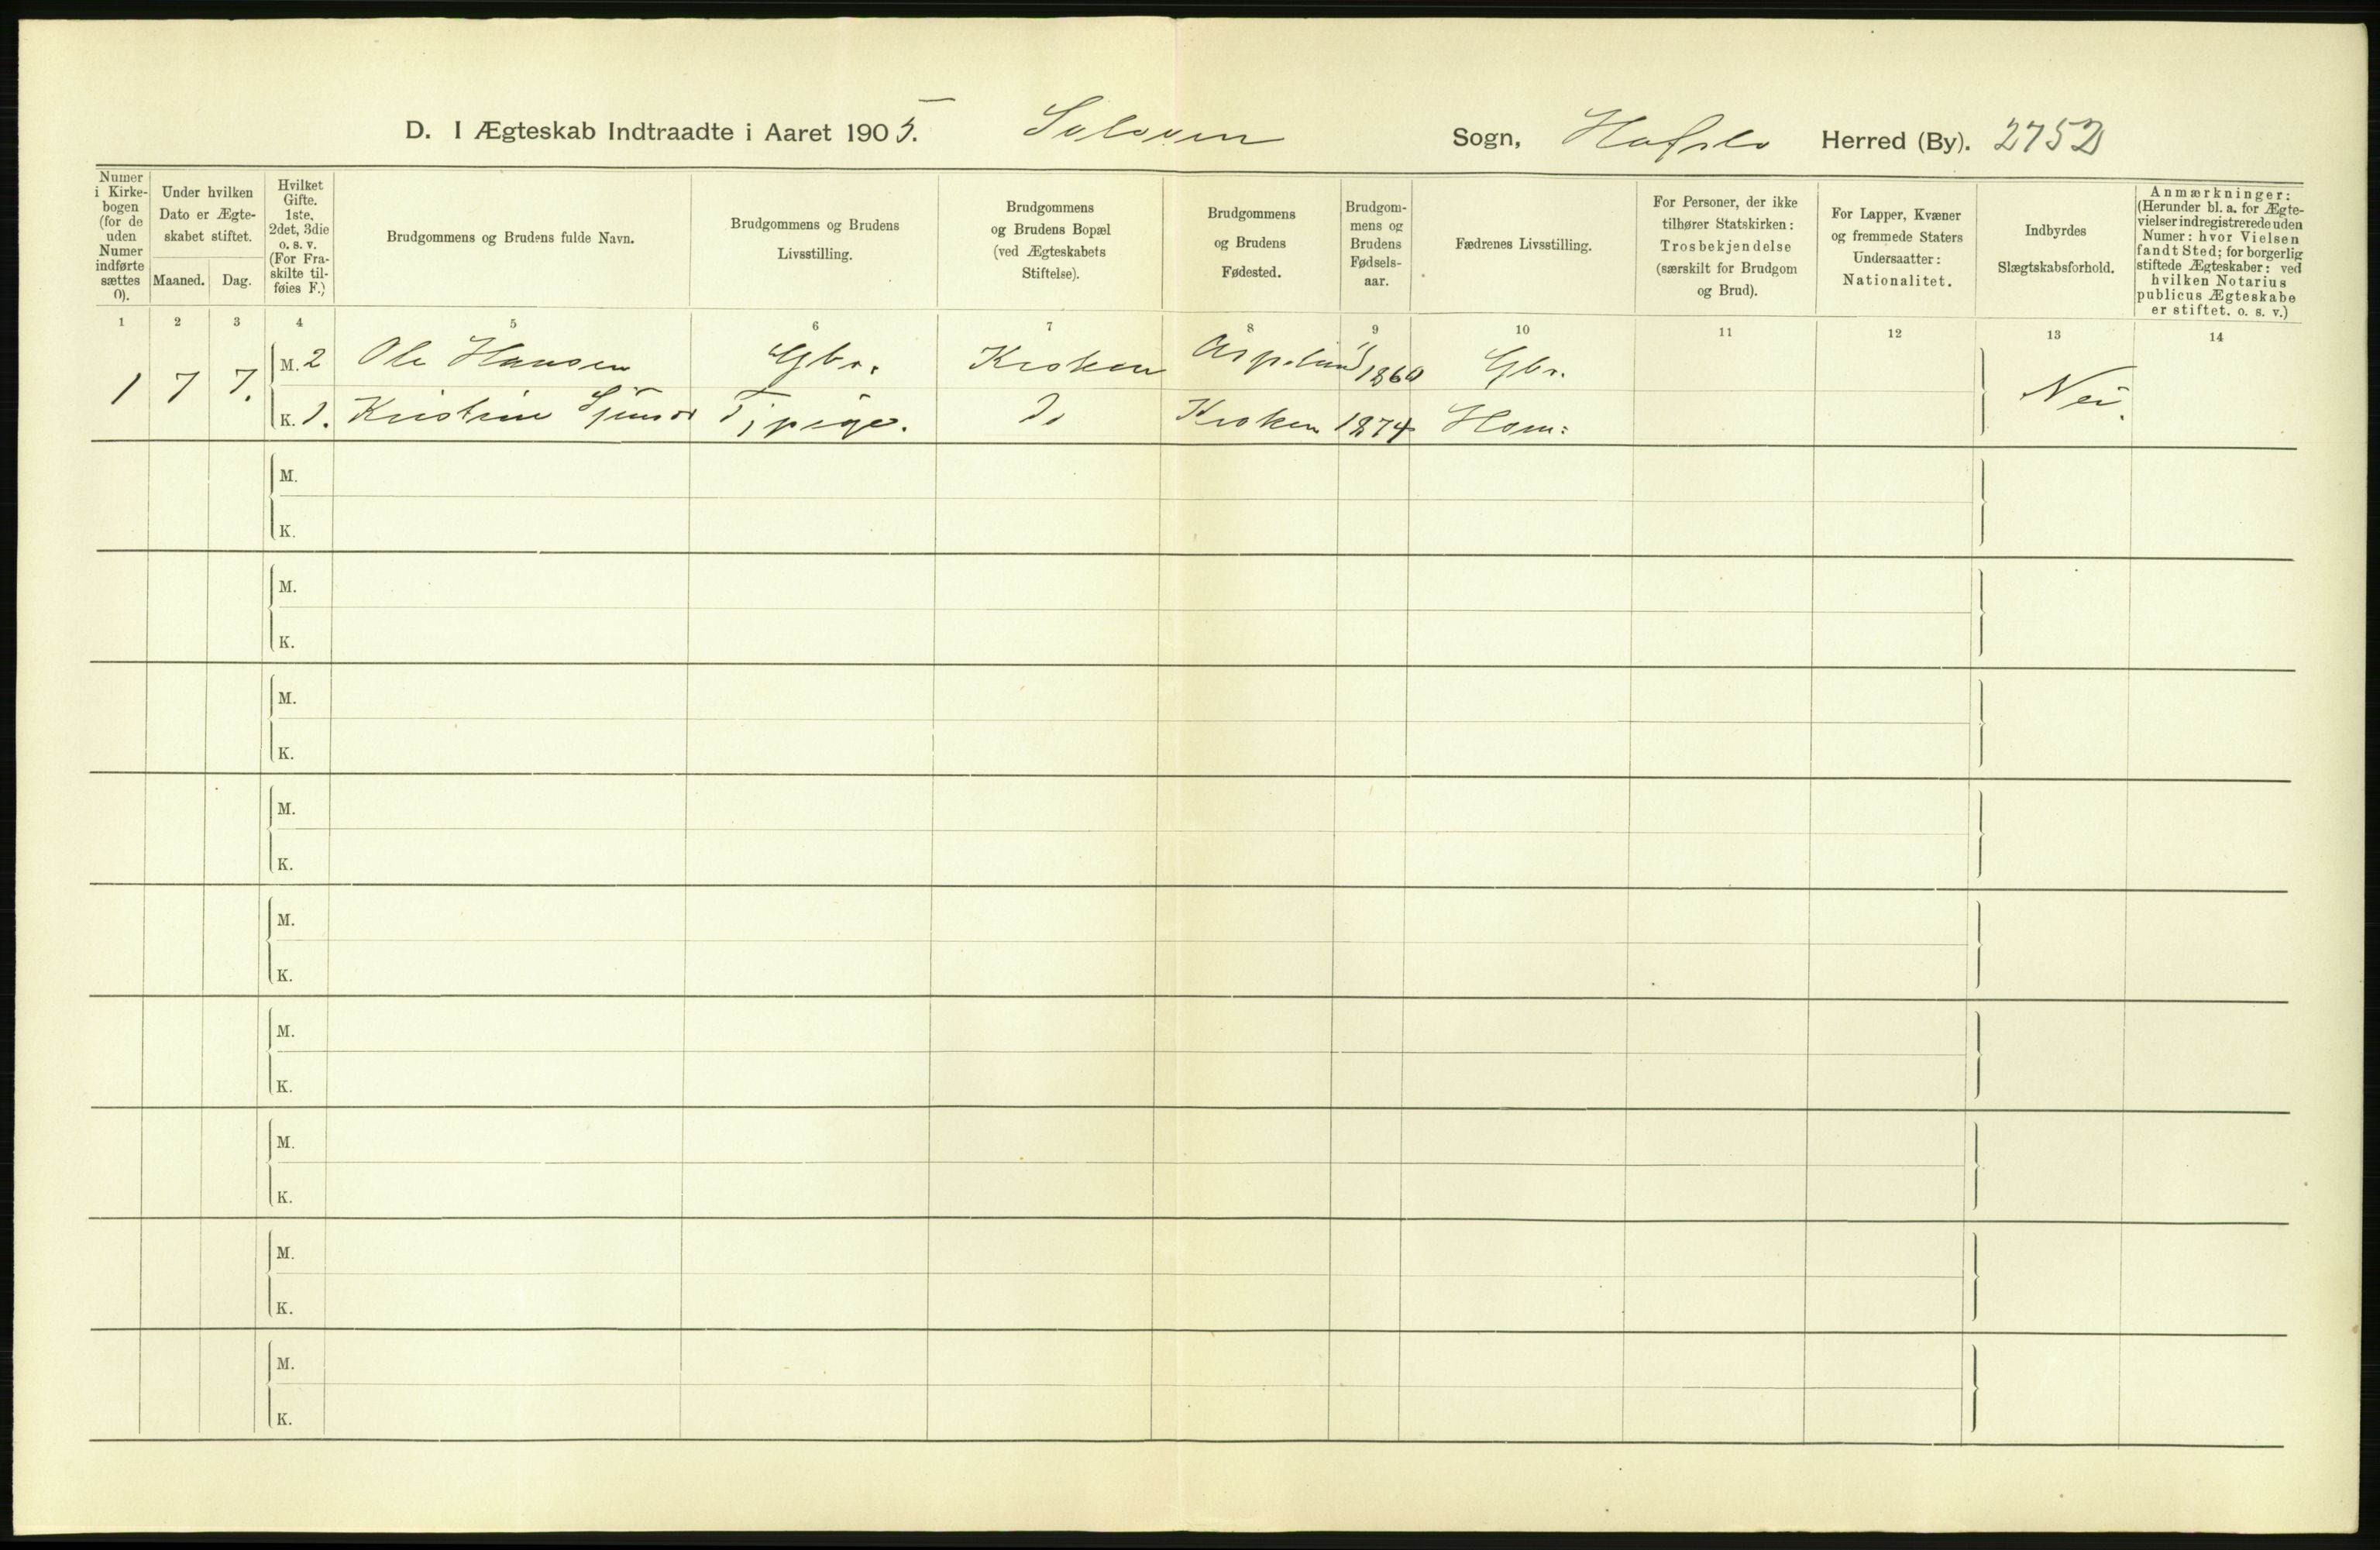 D. I Ægteskab Indtraadte i Aaret 1905. Solvorn Sogn, Hafslo Herred (By). 2752
Numer i Kirkebogen (for de uden Numer indførte sættes 0).
Under hvilken Dato er Ægteskabet stiftet.
Maaned. Dag.
Hvilket Gifte. 1ste, 2det, 3die o. s. v. (For Fraskilte tilføies F.)
Brudgommens og Brudens fulde Navn.
Brudgommens og Brudens Livsstilling.
Brudgommens og Brudens Bopæl (ved Ægteskabets Stiftelse).
Brudgommens og Brudens Fødested.
Brudgommens og Brudens Fødselsaar.
Fædrenes Livsstilling.
For Personer, der ikke tilhører Statskirken: Trosbekjendelse (særskilt for Brudgom og Brud).
For Lapper, Kvæner og fremmede Staters Undersaatter: Nationalitet.
Indbyrdes Slægtskabsforhold.
Anmærkninger: (Herunder bl. a. for Ægtevielser indregistrerede uden Numer: hvor Vielsen fandt Sted; for borgerlig stiftede Ægteskaber: ved hvilken Notarius publicus Ægteskabe er stiftet. o. s. v.)
1 2 3 4 5 6 7 8 9 10 11 12 13 14
1 7 7. M. 2 Ole Hansen Gbr. Kroken 1860 Gbr. Nei.
K. 1. Kristine Tj. pige. do Kroken 1874 Hom:
M.
K.
M.
K.
M.
K.
M.
K.
M.
K.
M.
K.
M.
K.
M.
K.
M.
K.